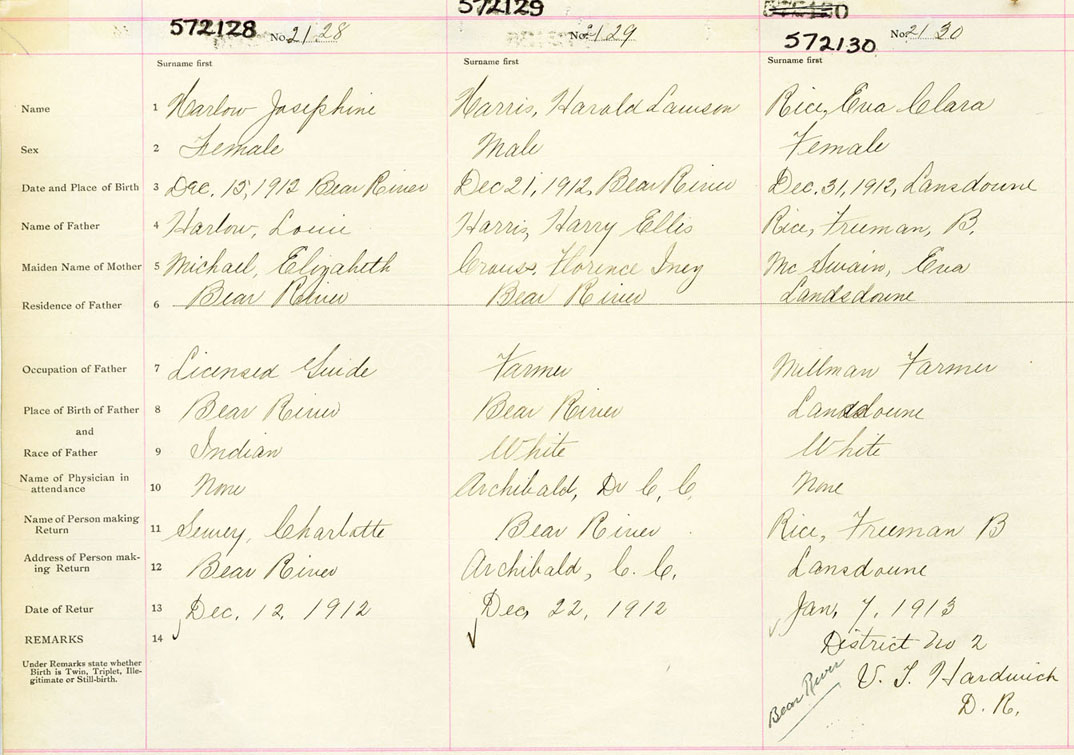 572128 No. 2128
572129 No. 2129
572130 No. 2130
Surname first Surname first Surname first
Name 1 Harlow Josephine Harris, Harold Lawson Rice, Eva Clara
Sex 2 Female Male Female
Date and Place of Birth 3 Dec. 15, 1912 Bear River Dec 21, 1912, Bear River Dec. 31, 1912, Lansdowne
Name of Father 4 Harlow, Louie Harris, Harry Ellis Rice, Freeman, B.
Maiden Name of Mother 5 Michael, Elizabeth Crouse, Florence Inez McSwain, Eva
Residence of Father 6 Bear River Bear River Landsdowne
Occupation of Father 7 Licensed Guide Farmer Millman Farmer
Place of Birth of Father 8 Bear River Bear River Lansdowne
and
Race of Father 9 Indian White White
Name of Physician in
attendance 10 None Archibald, Dr C. C. None
Name of Person making
Return 11 Charlotte Bear River Rice, Freeman B
Address of Person mak-
ing Return 12 Bear River Archibald, C. C. Lansdowne
Date of Retur 13 Dec. 12, 1912 Dec, 22, 1912 Jan, 7, 1913
REMARKS 14 District No 2
Under Remarks state whether
Birth is Twin, Triplet, Ille-
gitimate or Still-birth.
Bear River
V. T. Hardwick
D. R.